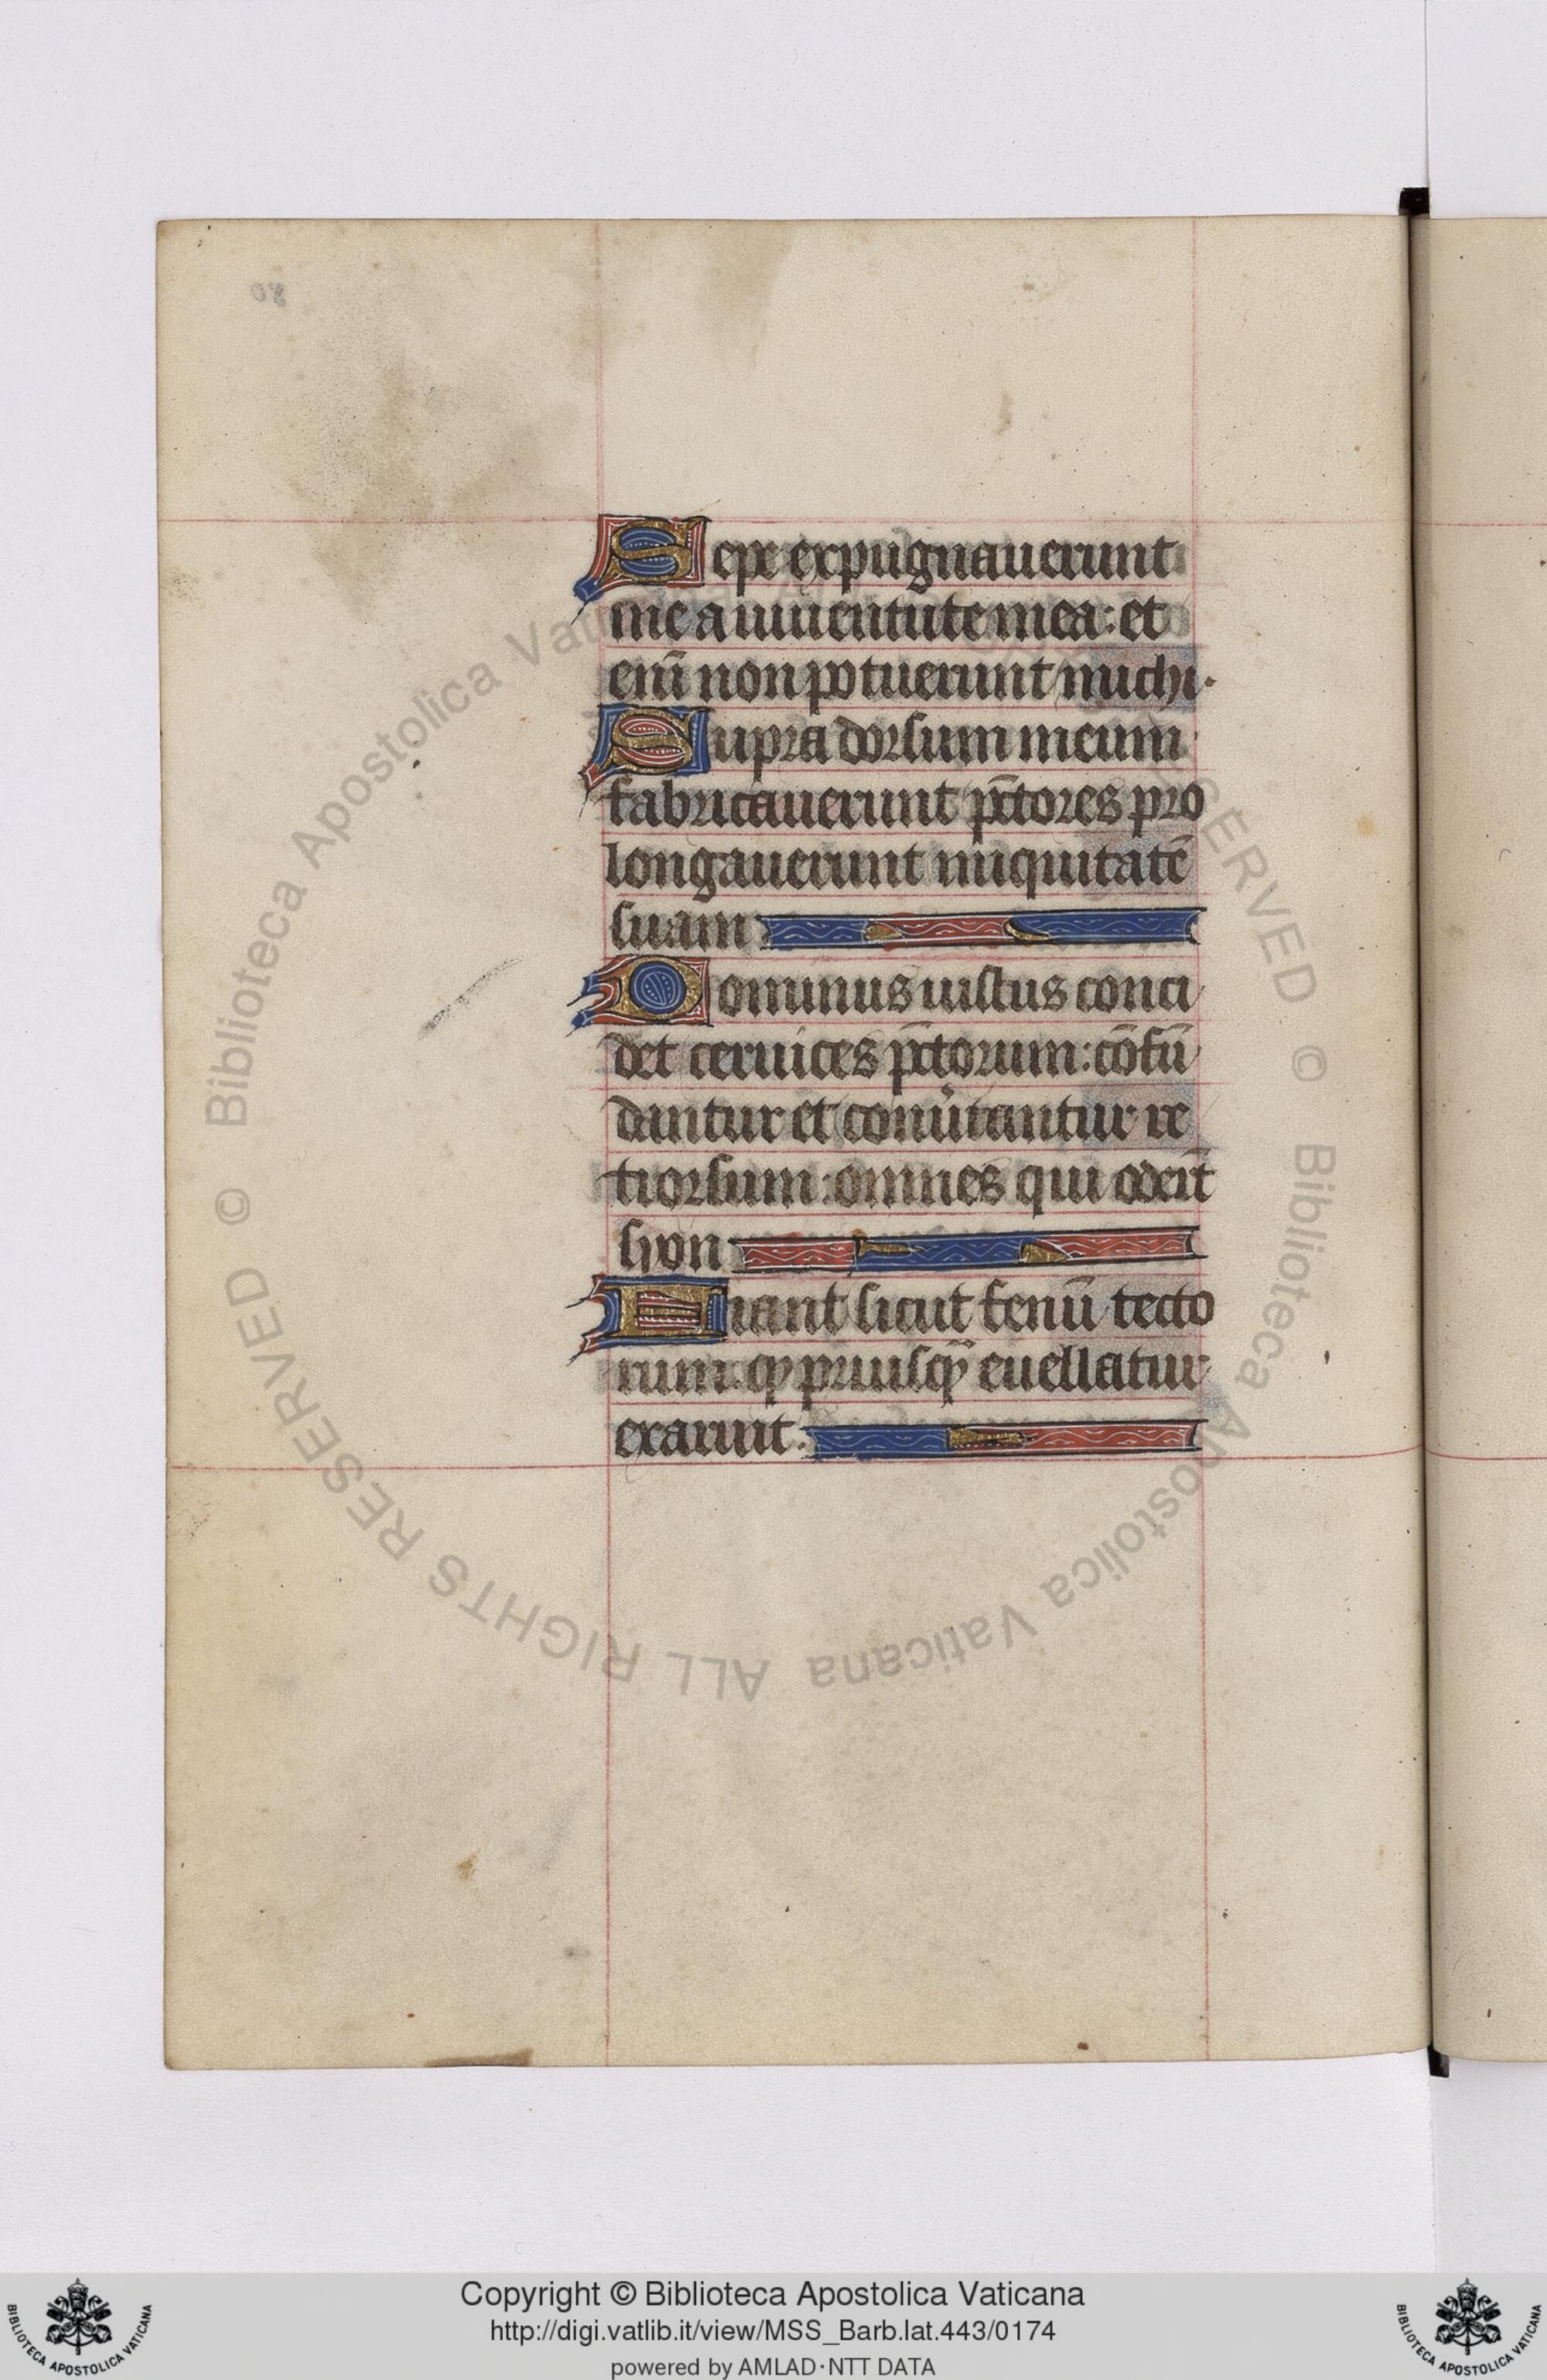 Sepe expugnauerunt
me a iuuentute mea: et
enī non potuerunt michi.
Supra dorsum meum
fabricauerunt pc̄tores pro
longauerunt iniquitatē
suam
Dominus iustus conci
det ceruices pc̄torum: cōfū
dantur et conũtantur re
trorsum: omnes qui oderūt
syon
Fiant sicut fenū tecto
rum: qͥ priusqͣ euellatur
exaruit.
© Biblioteca Apostolica Vaticana ALL RIGHTS RESERVED © Biblioteca Apostolica Vaticana ALL RIGHTS RESERVED
Copyright © Biblioteca Apostolica Vaticana
http://digi.vatlib.it/view/MSS_Barb.lat.443/0174
powered by AMLAD·NTT DATA
BIBLIOTECA APOSTOLICA VATICANA
BIBLIOTECA APOSTOLICA VATICANA